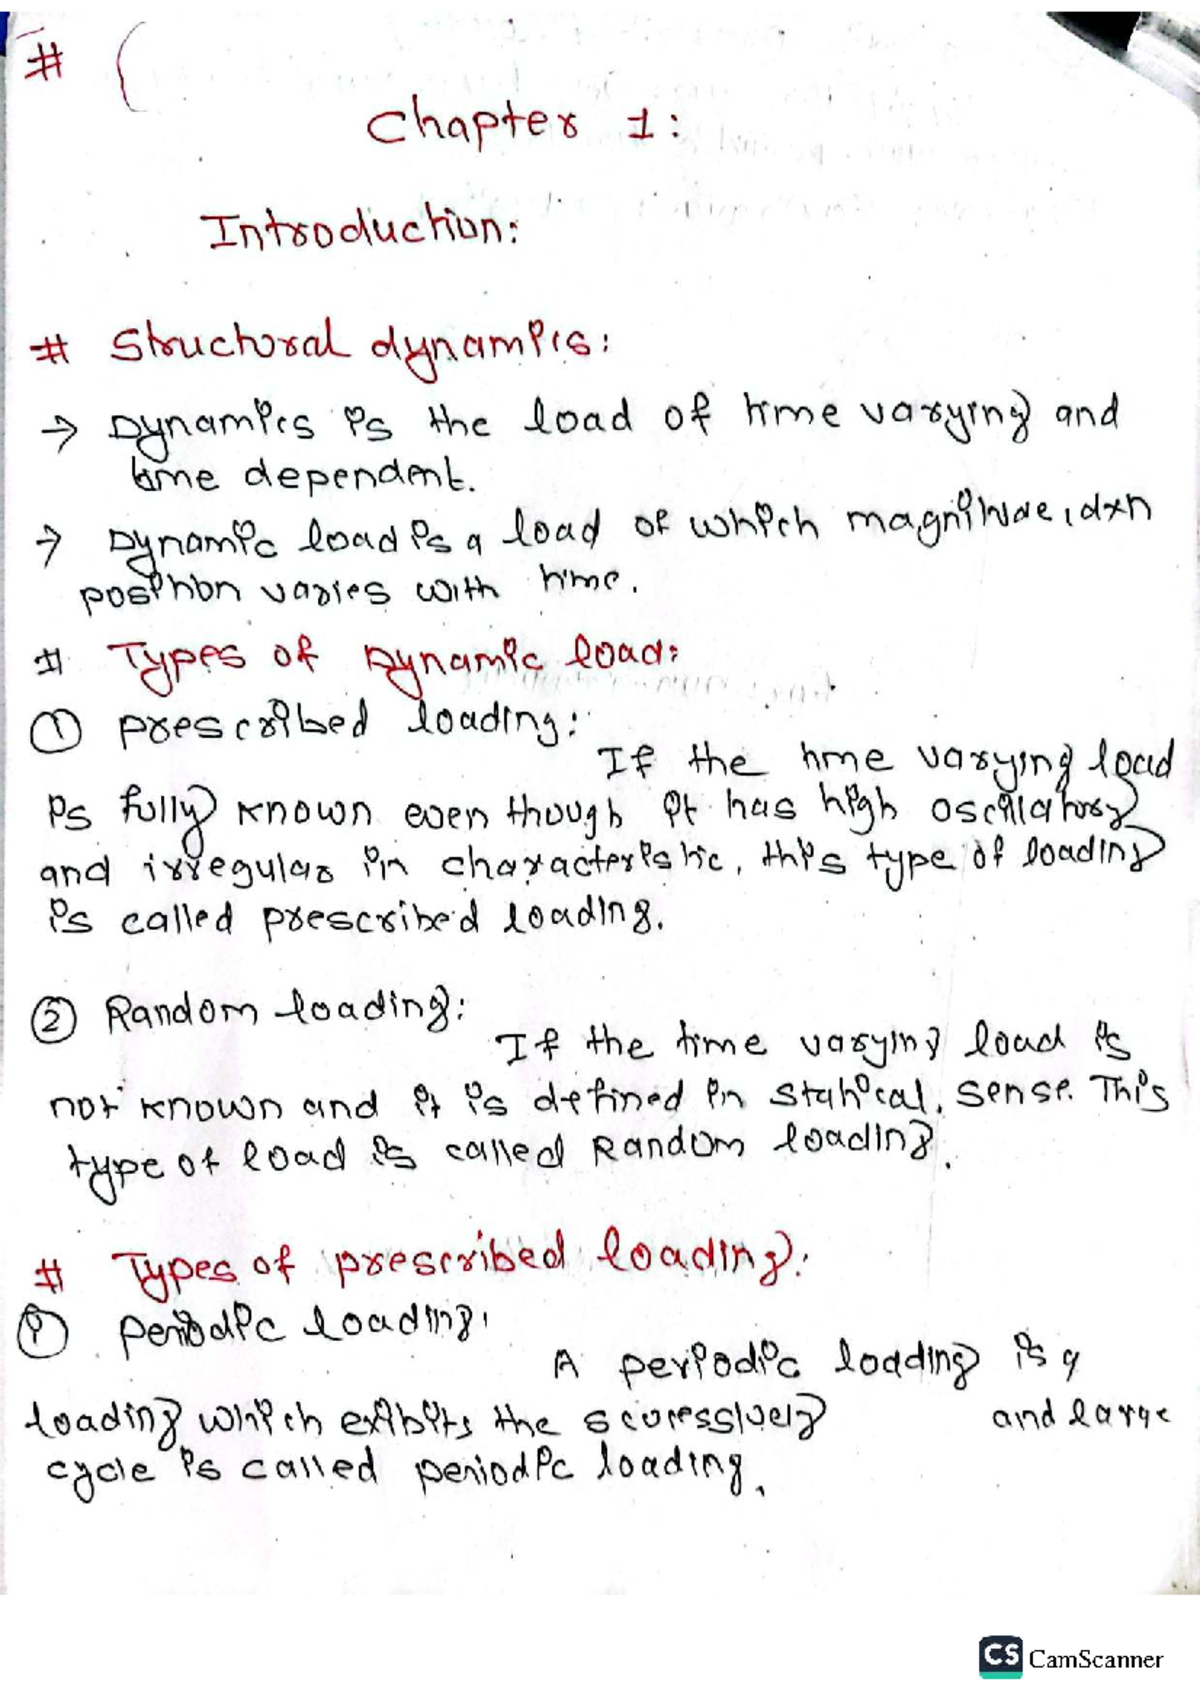 # (
Chapter 1:
Introduction:
# Structural dynamics:
→ Dynamics is the load of time varying and
time dependent.
→ Dynamic load is a load of which magnitude, dxn
position varies with time.
# Types of Dynamic load:
① prescribed loading:
If the time varying load
is fully known even though it has high oscillatory
and irregular in characteristic, this type of loading
is called prescribed loading.
② Random loading:
If the time varying load is
not known and it is defined in statical, sense. This
type of load is called Random loading.
# Types of prescribed loading:
ⓘ periodic loading:
A periodic loading is a
loading which exibits the and large
cycle is called periodic loading.
CS CamScanner